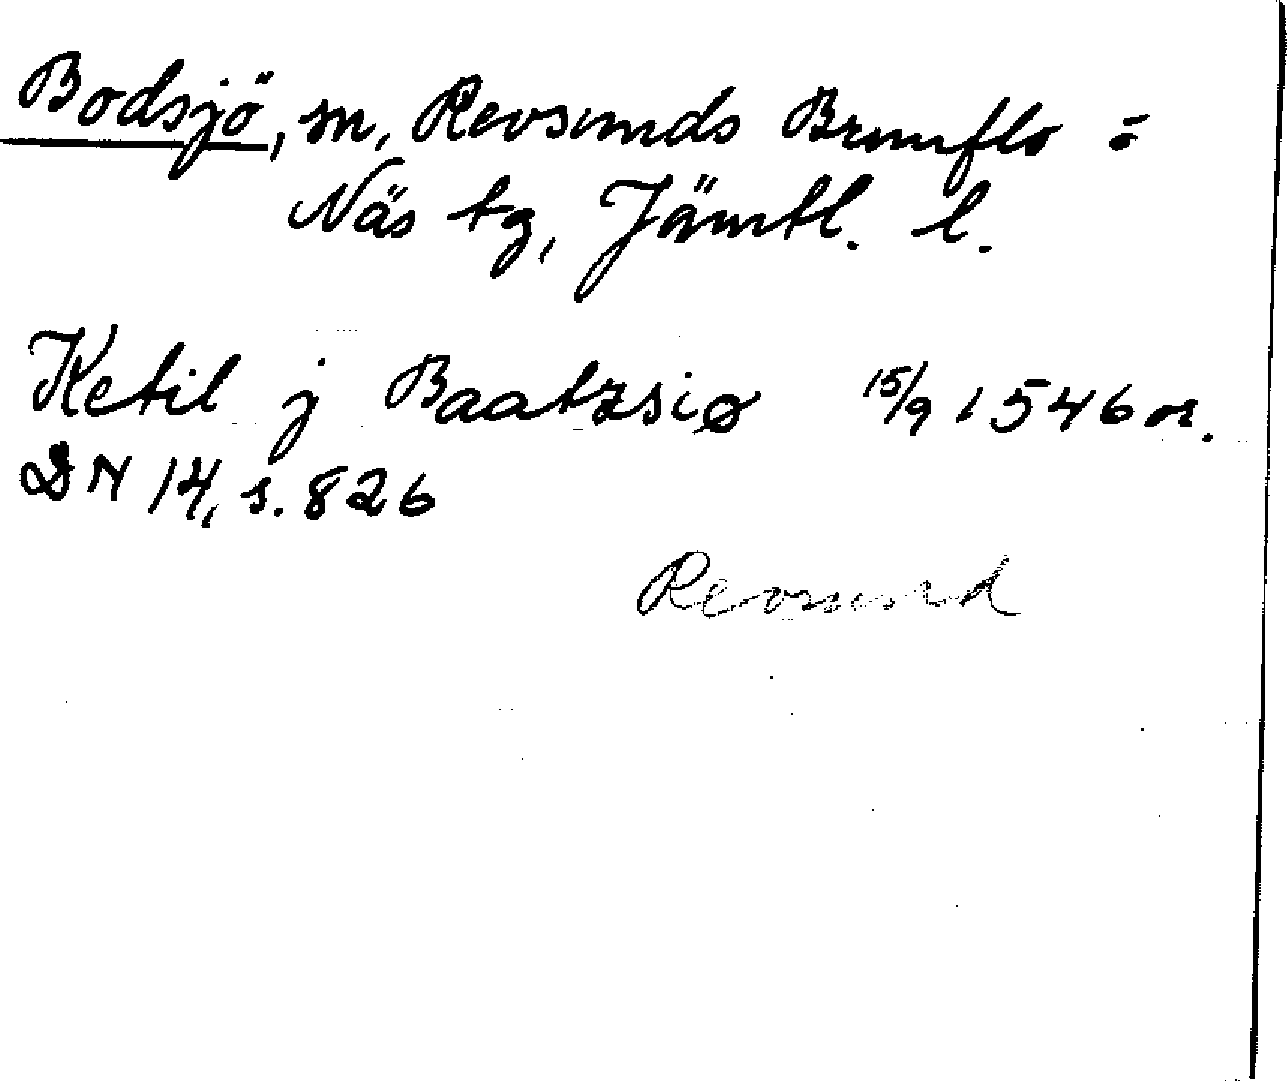 Bodsjö, sn, Revsunds Brunflo =
Näs tg, Jämtl. l.
Ketil j Baatzsiø 15/9 1546 or.
DN 14, s. 826
Revsund